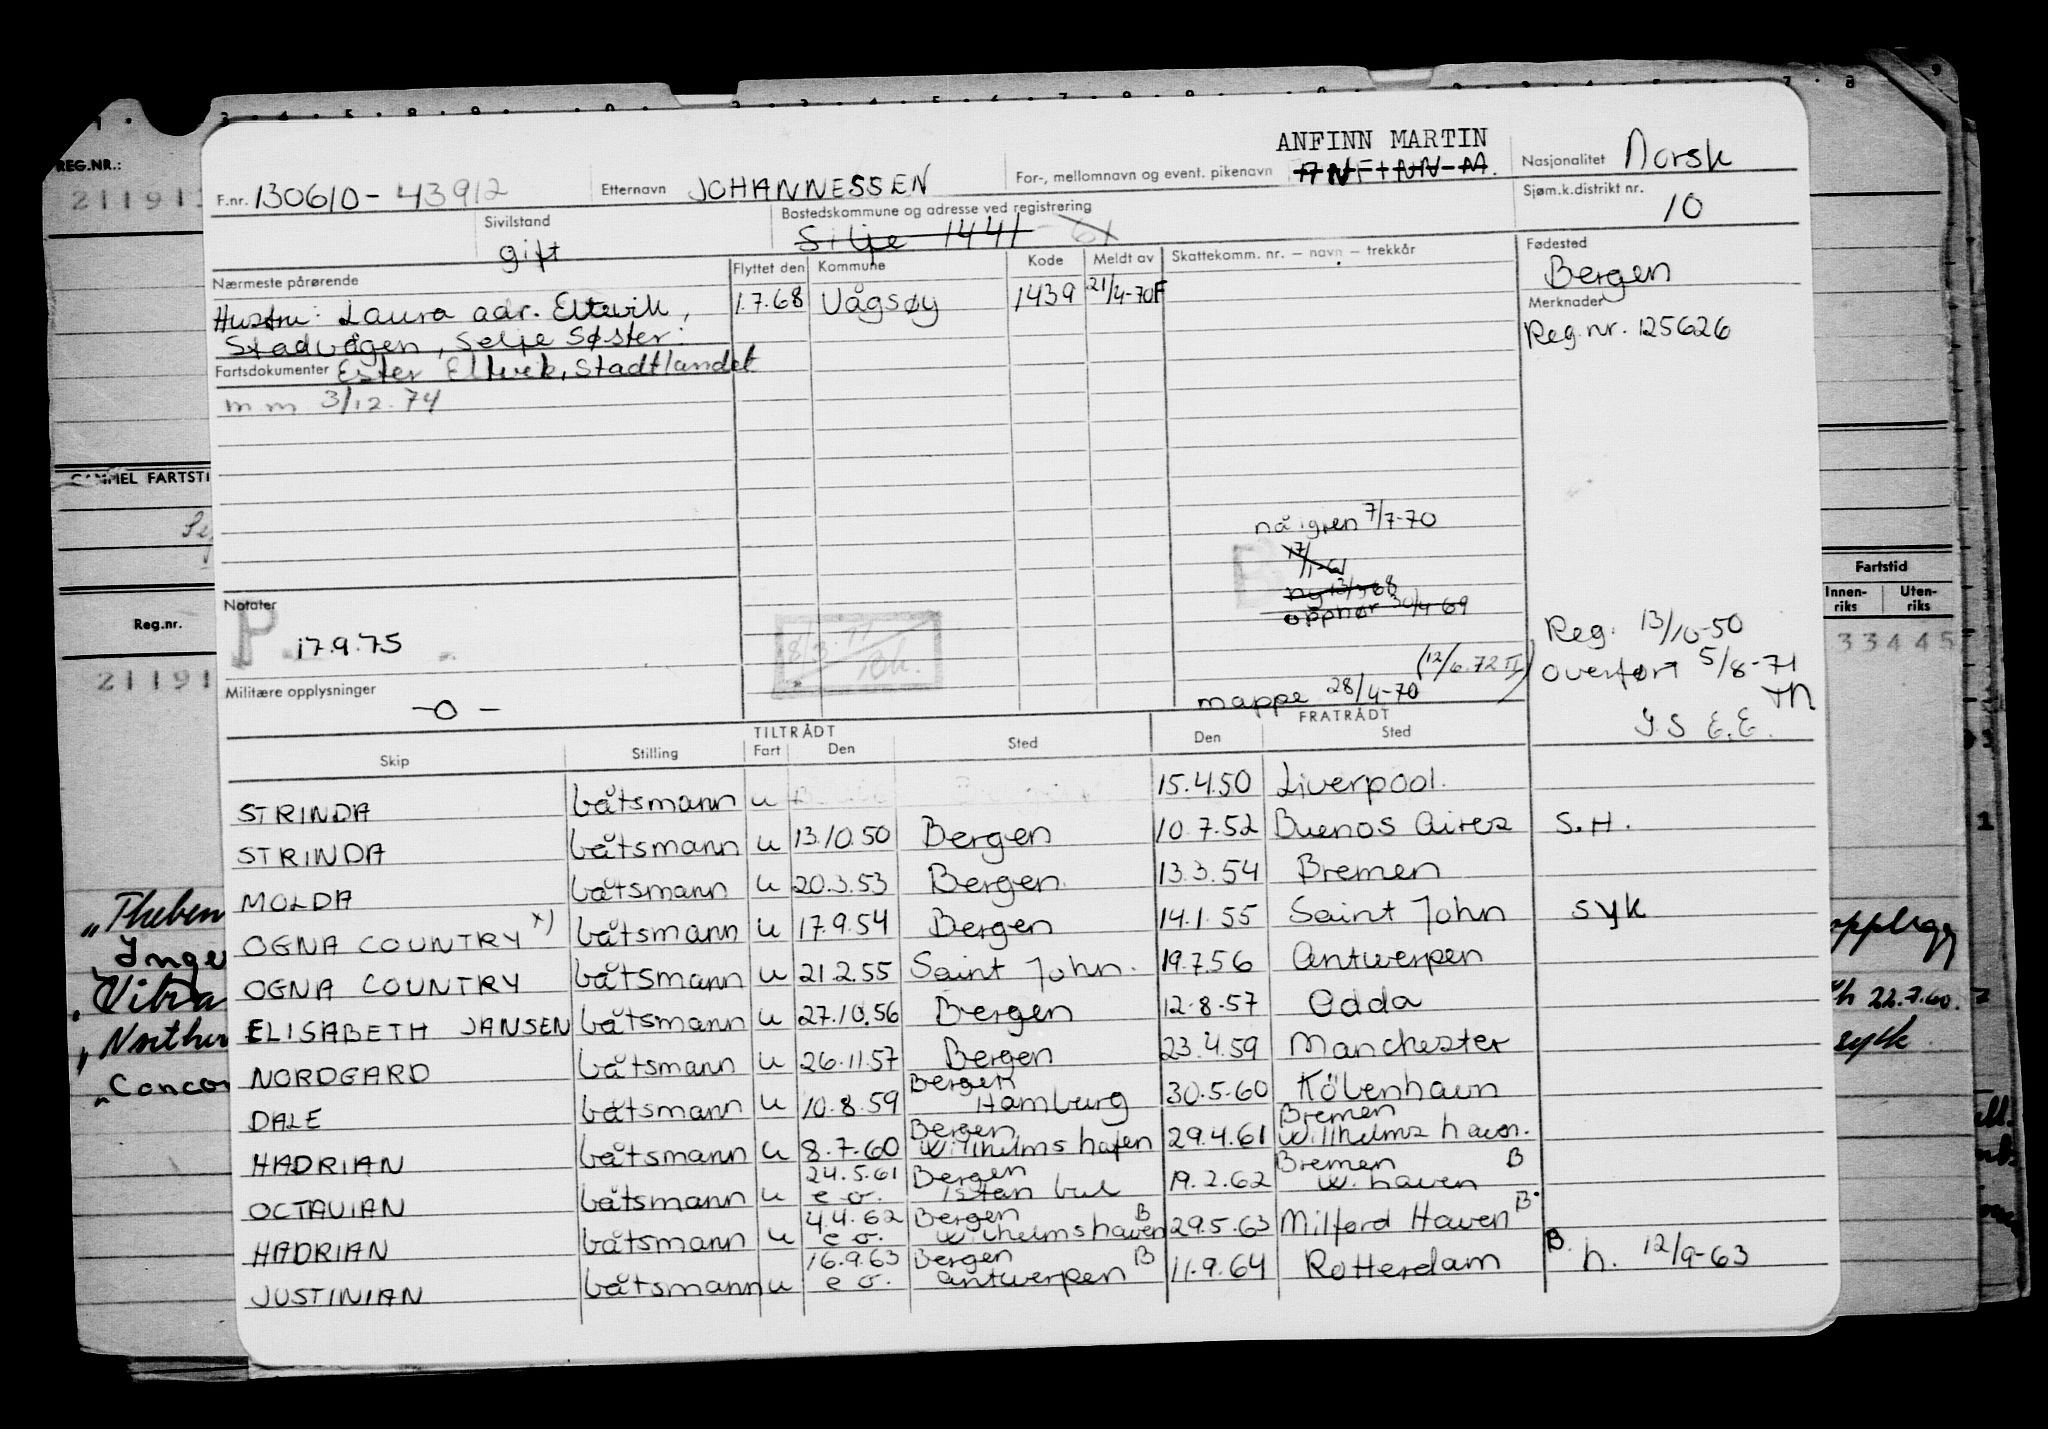 REG.NR.:
21191
F.nr. 130610-43912
Etternavn JOHANNESSEN
For-, mellomnavn og event. pikenavn ANFINN MARTIN
ANFINN M.
Nasjonalitet Norsk
Sivilstand gift
Bostedskommune og adresse ved registrering
Silje 1441 - 61
Sjøm.k.distrikt nr. 10
Nærmeste pårørende
Hustru: Laura adr. Eltvik,
Stadvågen, Selje Søster:
Fartsdokumenter Ester Eltvik, Stadtlandet
m m 3/12.74
Flyttet den Kommune Kode Meldt av Skattekomm. nr. — navn — trekkår
1.7.68 Vågsøy 1439 21/4-70F
Fødested Bergen
Merknader
Reg.nr. 125626
GAMMEL FARTSTI
nå igren 7/7-70
17/1-61
ny 13/3 68
opphør 30/4 69
B
(12/6.72 TL)
mappe 28/4-70
Reg. 13/10-50
Overført 5/8-71
TH
J.S E.E.
Notater
P 17.9.75
8/3.71
Militære opplysninger
-0-
Reg.nr.
21191
Fartstid
Innen-riks Uten-riks
33445
TILTRÅDT FRATRÅDT
Skip Stilling Fart Den Sted Den Sted
STRINDA båtsmann u 15.4.50 Liverpool.
STRINDA båtsmann u 13.10.50 Bergen 10.7.52 Buenos Aires S.H.
MOLDA båtsmann u 20.3.53 Bergen 13.3.54 Bremen
OGNA COUNTRY x) båtsmann u 17.9.54 Bergen 14.1.55 Saint John syk
OGNA COUNTRY båtsmann u 21.2.55 Saint John. 19.7.56 Antwerpen
ELISABETH JANSEN båtsmann u 27.10.56 Bergen 12.8.57 Odda
NORDGARD båtsmann u 26.11.57 Bergen 23.4.59 Manchester
DALE båtsmann u 10.8.59 Bergen Hamburg 30.5.60 Köbenhavn
HADRIAN båtsmann u 8.7.60 Bergen Wilhelmshafen 29.4.61 Bremen Willhelmshaven.
OCTAVIAN båtsmann u 24.5.61 e o. Bergen Istanbul 19.2.62 Bremen W.haven B
HADRIAN båtsmann u 4.4.62 e o. Bergen Wilhelmshaven B 29.5.63 Milford Haven B.
JUSTINIAN båtsmann u 16.9.63 e o. Bergen Antwerpen B 11.9.64 Rotterdam B. h. 12/9-63
„Theben
„Vibra
„Concor
opplegg
22.7.60.
sylk.